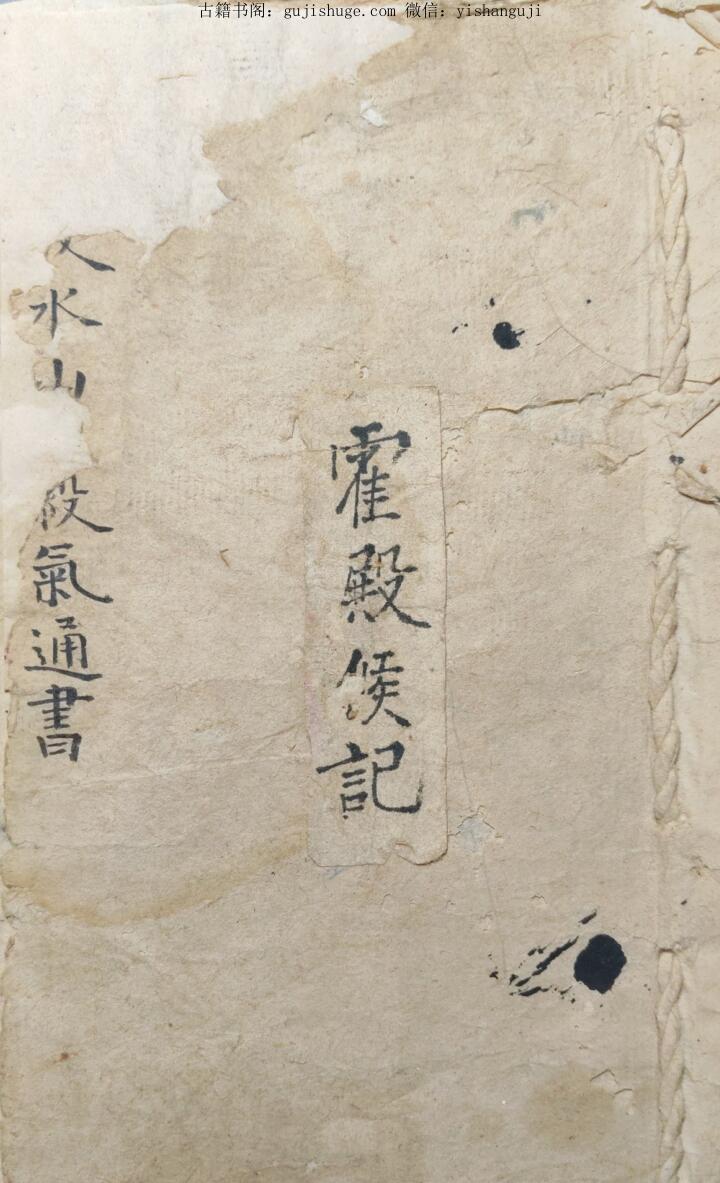 古籍书阁：gujishuge.com 微信：yishanguji
霍殿候記
水山殺氣通書